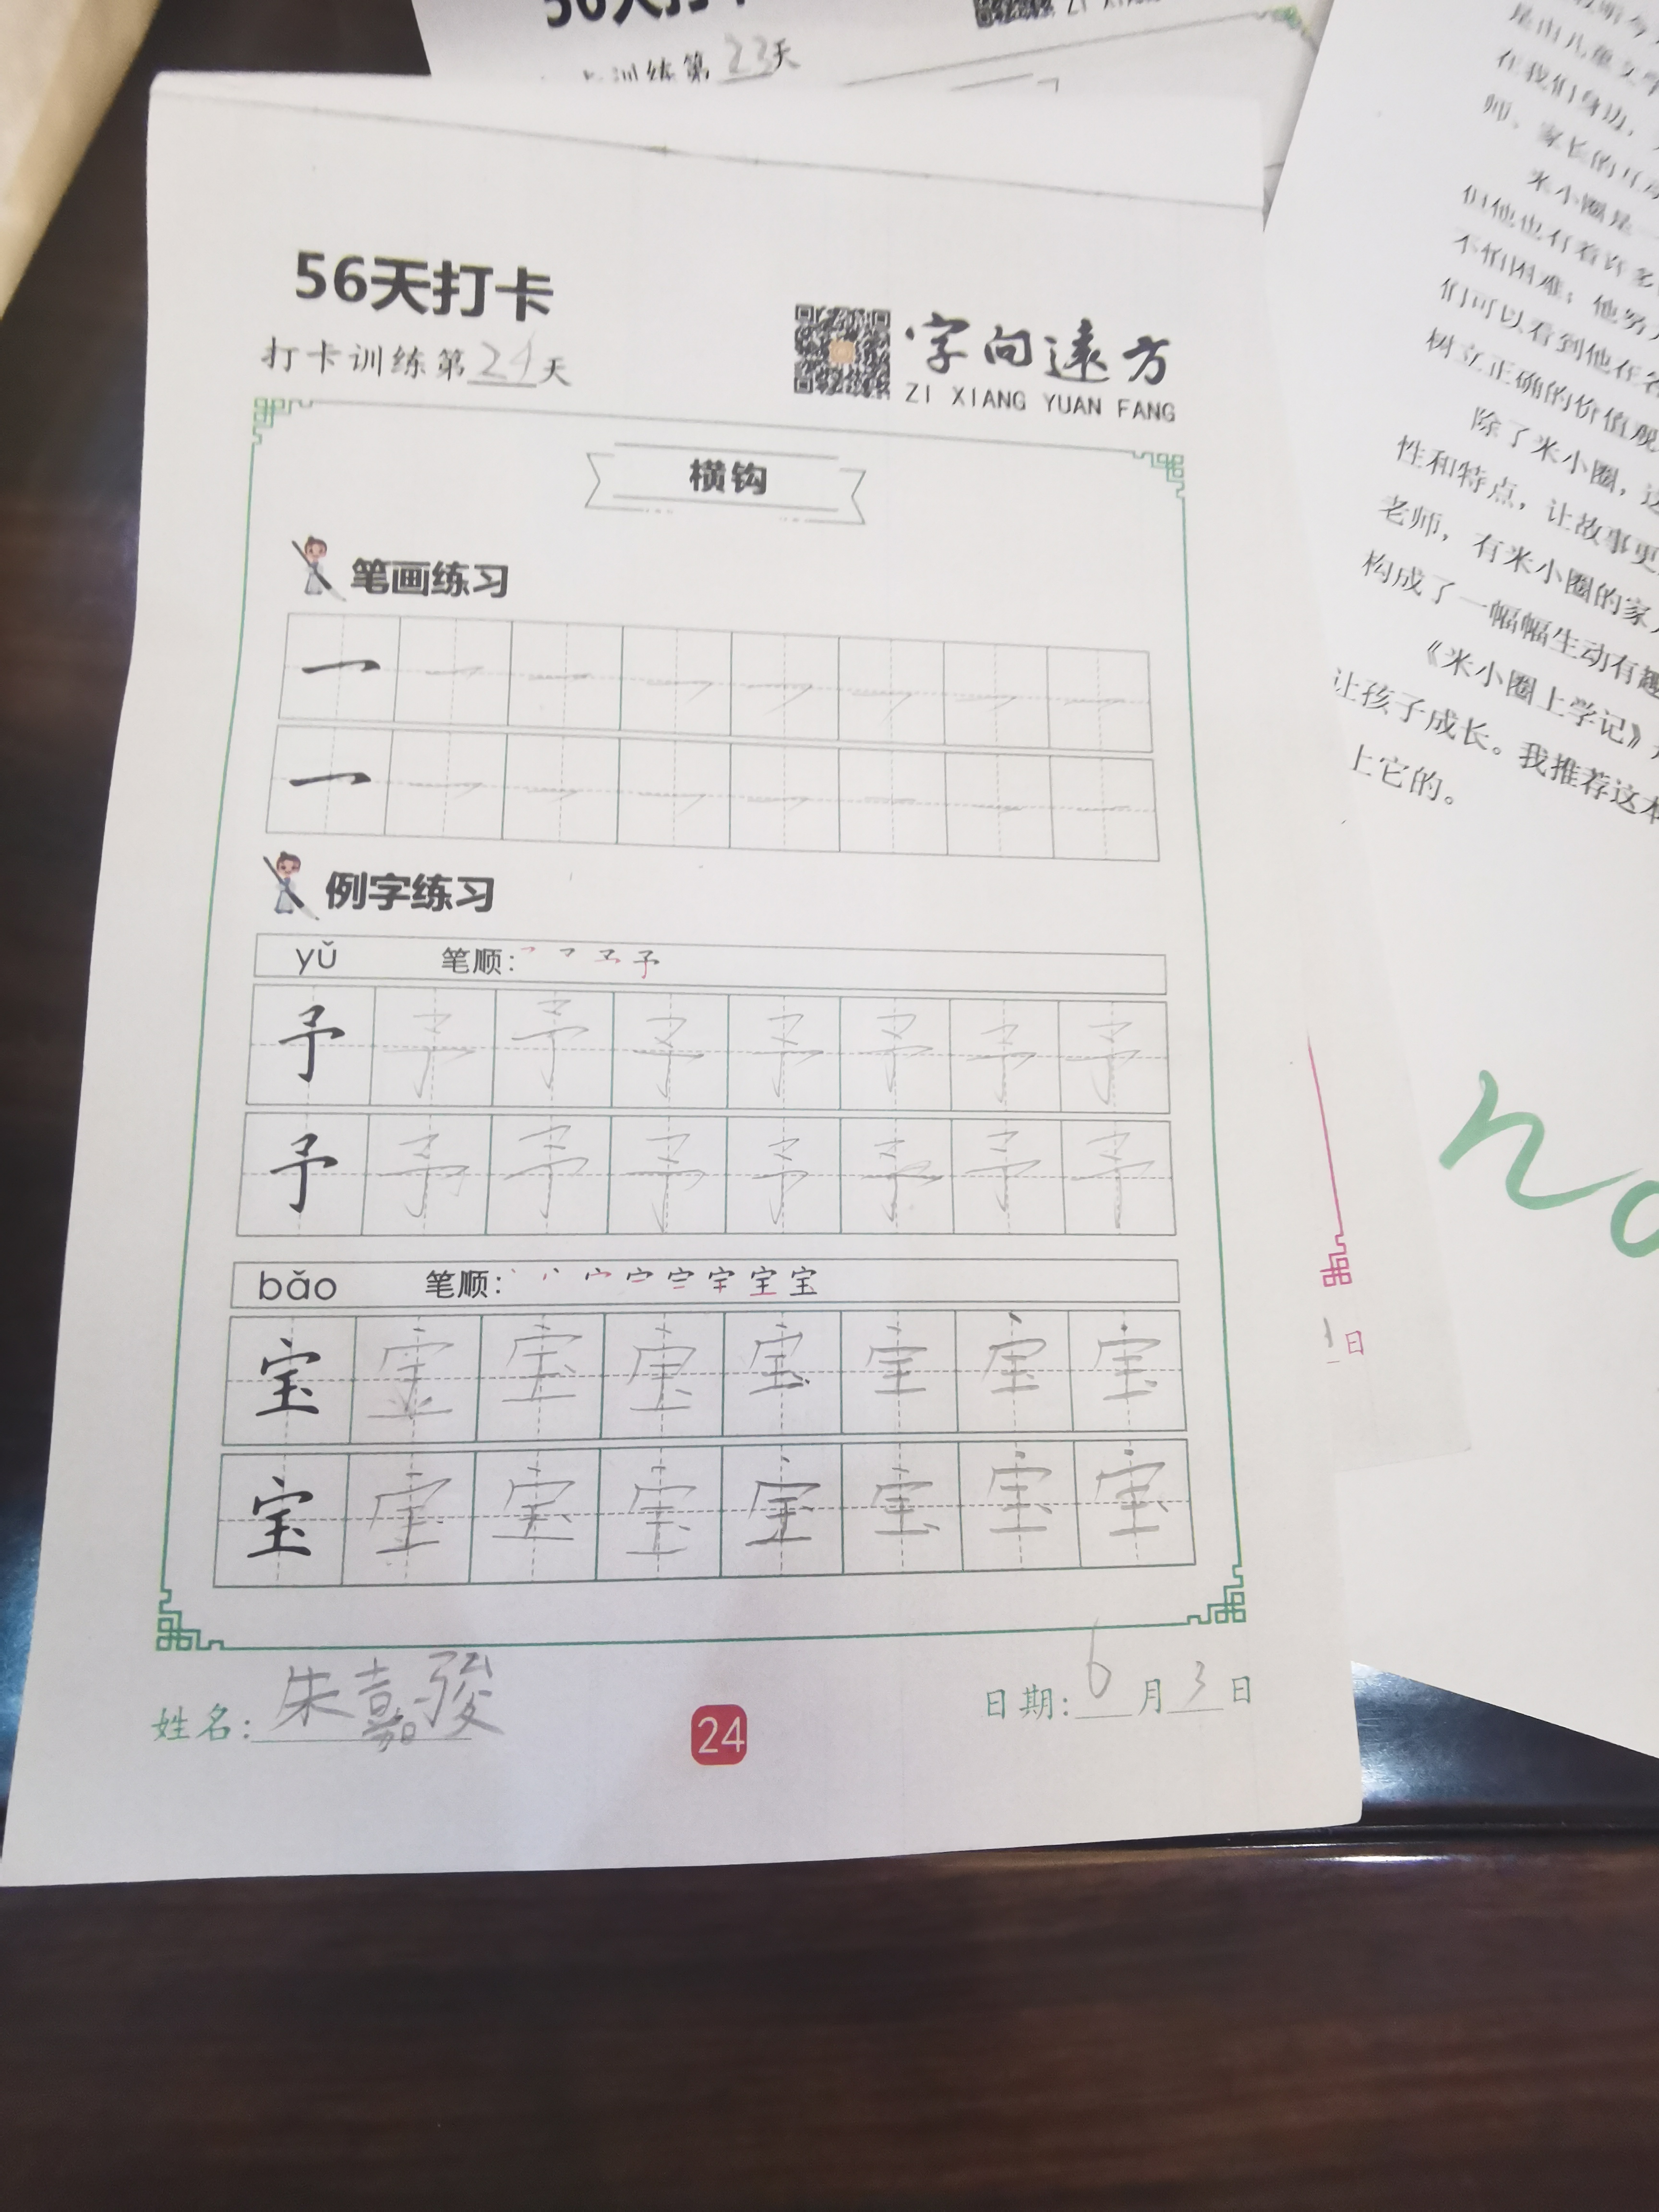 56天打卡
训练第23天
56天打卡
打卡训练第24天
字向远方
ZI XIANG YUAN FANG
横钩
笔画练习
例字练习
yǔ 笔顺:
予 予 予 予 予 予 予 予
予 予 予 予 予 予 予 予
bǎo 笔顺:
宝 宝 宝 宝 宝 宝 宝 宝
宝 宝 宝 宝 宝 宝 宝 宝
姓名:朱嘉骏
24
日期:6月3日
是由儿童文学
在我们身边,
师、家长的互动
米小圈是一
但他也有着许多
不怕困难;他努力
们可以看到他在各
树立正确的价值观
除了米小圈,这
性和特点,让故事更
老师,有米小圈的家
构成了一幅幅生动有趣
《米小圈上学记》
让孩子成长。我推荐这本
上它的。
日